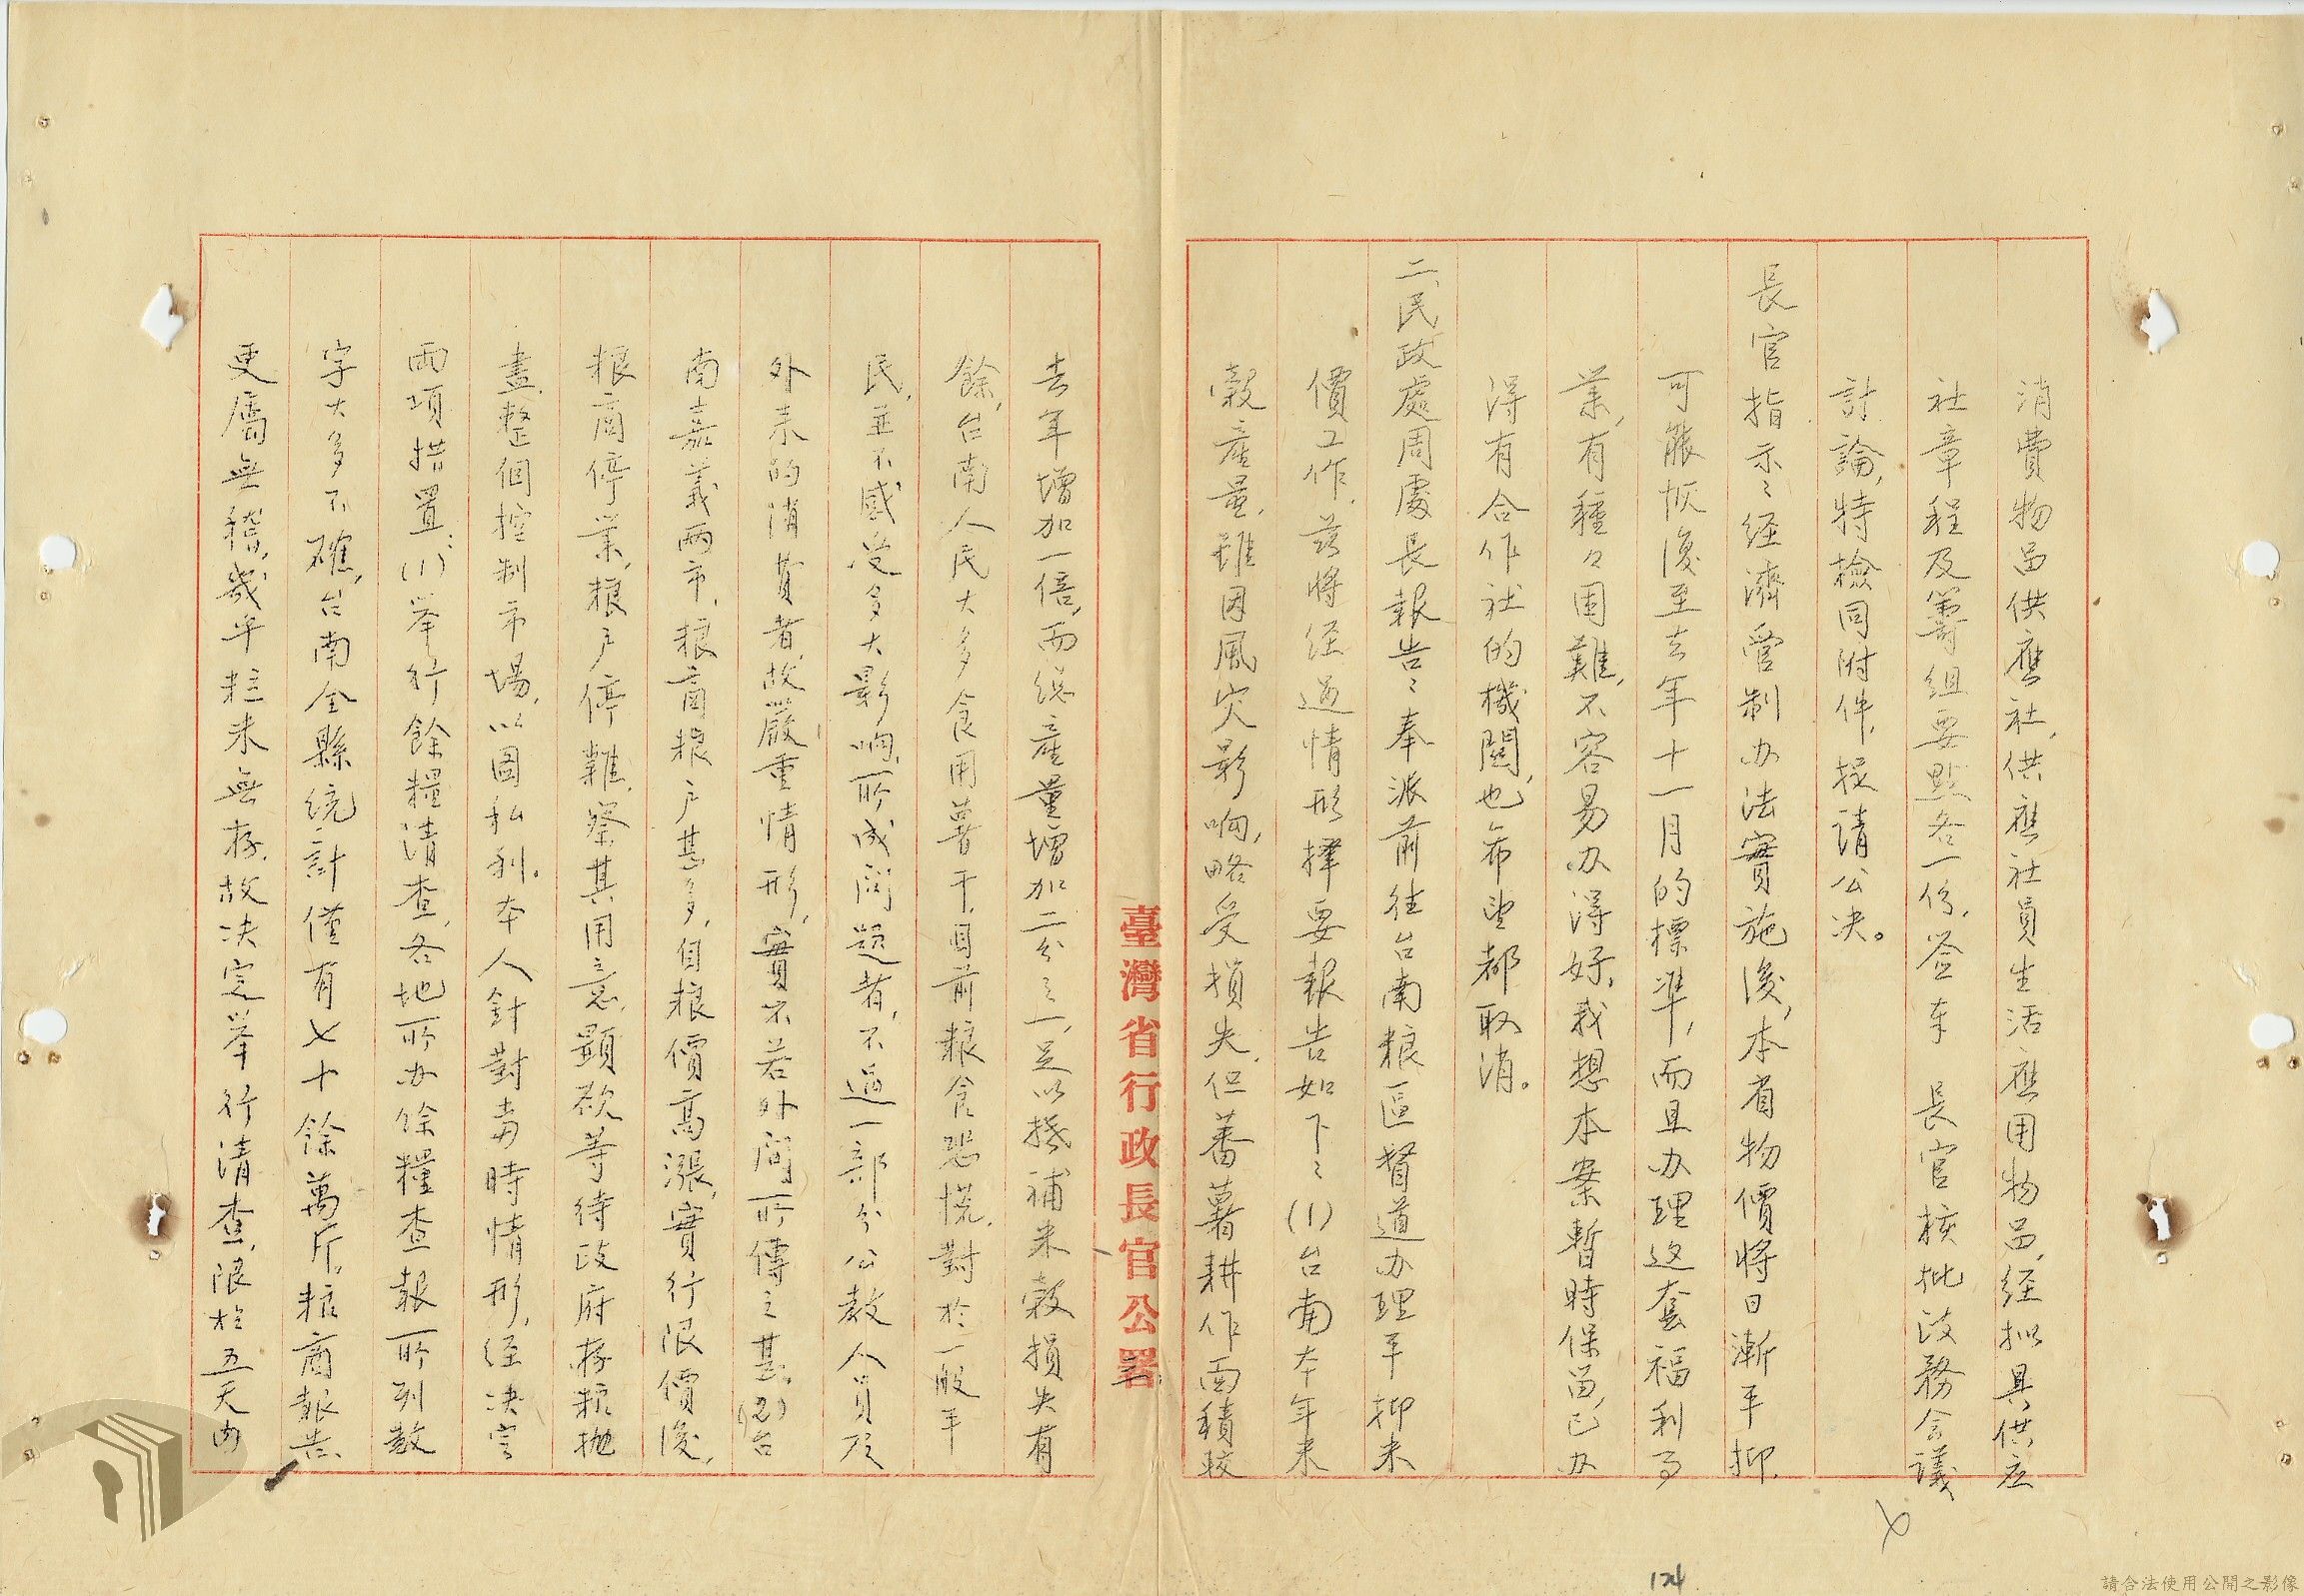 消費物品供應社，供應社員生活應用物品，經拟具供应
社章程及籌組要點各一份，签奉　長官核批政務会議
討論，特檢同附件，提請公决。
長官指示：经濟管制办法實施後，本省物價將日漸平抑，
可能恢復至去年十一月的標準，而且办理这套福利事
業，有種々困難，不容易办得好，我想本案暫時保留，已办
得有合作社的機関，也希望都取消。
二、民政處周處長報告：奉派前往台南粮區督道办理平抑米
價工作，茲將经过情形擇要報告如下：(1)台南本年米
穀產量，雖因風灾影响，略受損失，但蕃薯耕作面積較
臺灣省行政長官公署
去年增加一倍，而總產量增加二分之一，足以抵補米穀損失有
餘，台南人民大多食用薯干，目前粮食恐慌，對於一般平
民，並不感受多大影响，所成问題者，不过一部分公教人員及
外来的消費者，故嚴重情形，實不若外间所傳之甚。(2)台
南嘉義兩市，粮商粮户甚多，自粮價高漲，實行限價後，
粮商停業，粮户停糶，察其用意，顯欲等待政府存粮拋
盡，整個控制市場，以圖私利。本人針對當時情形，经决定
兩項措置：(1)举行餘糧清查，各地所办餘糧查報所列数
字大多不確，台南全縣统計僅有七十餘萬斤，粮商報告
更屬無稽，幾乎粒米無存，故决定举行清查，限於五天内
124
請合法使用公開之影像